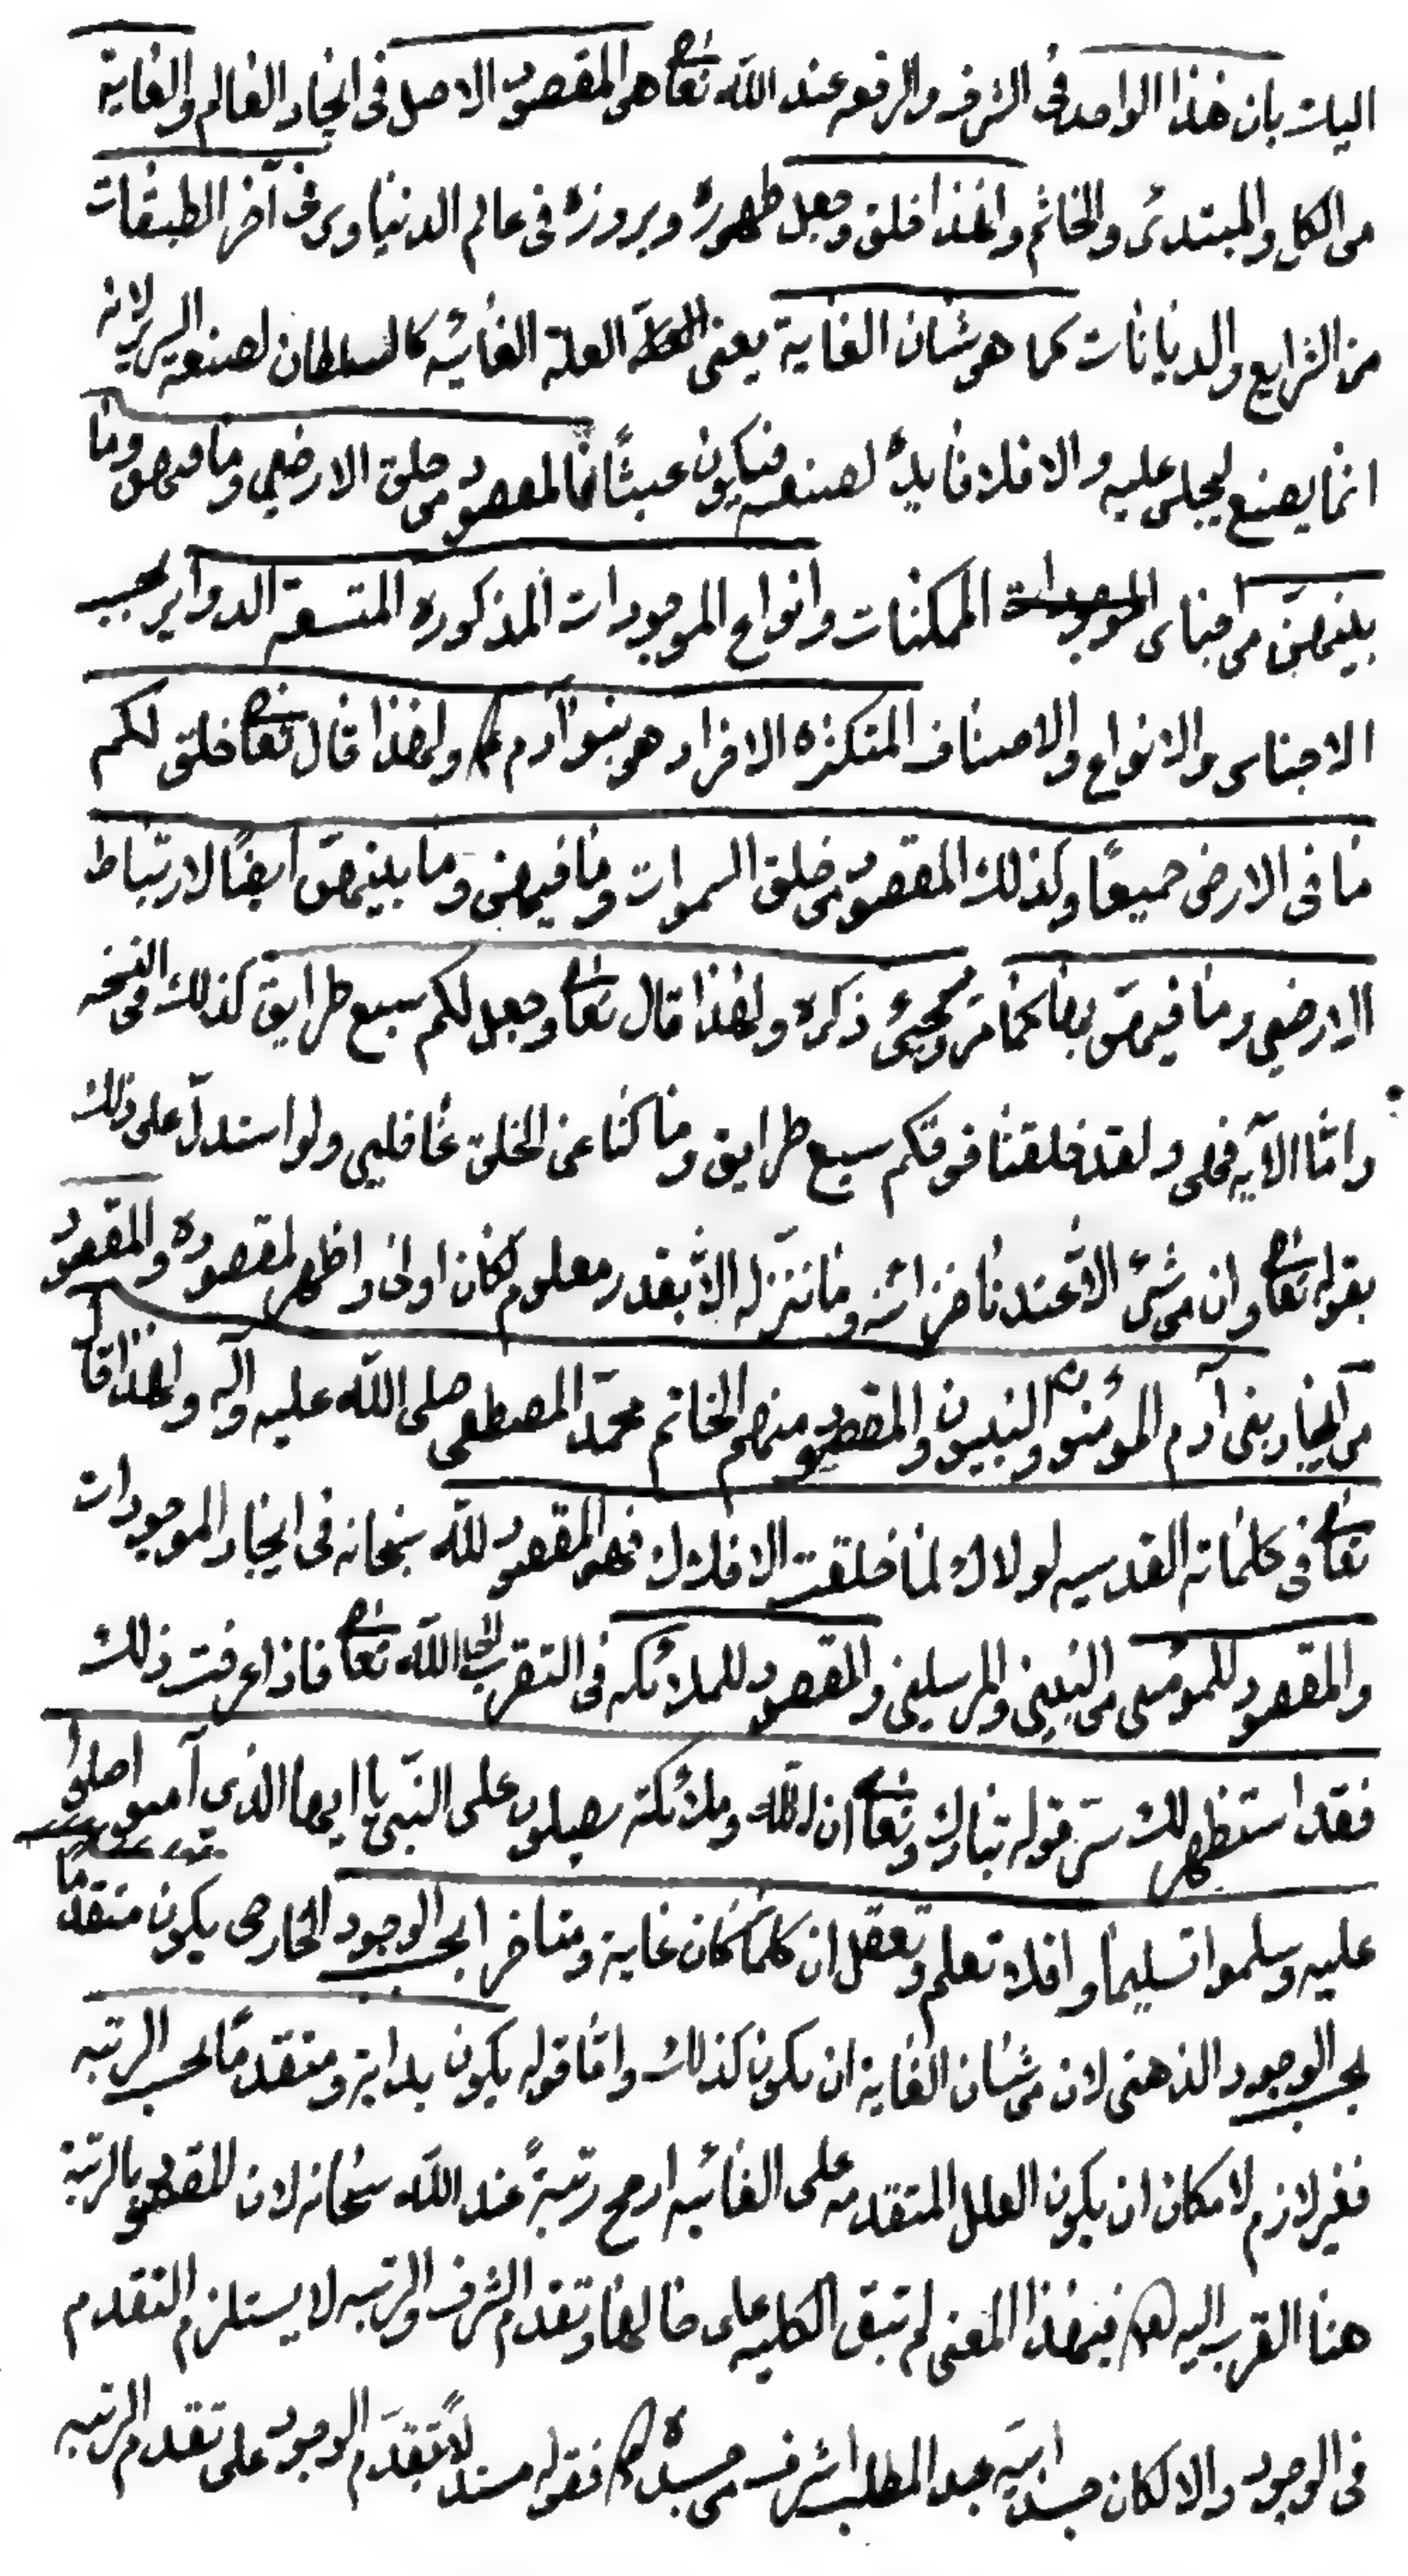 اليك بان هذا الواحد فى الشرف والرفعه عند الله تعا هى المقصود الاصل فى ايجاد العالم والغاية
من الكل والمبتدئ والخاتم ولهذا خلق وجعل ظهوره وبروزه فى عالم الدنيا وبرق آخر الطبقات
من الشرايع والديانات كما هو شان الغاية يعنى العلة الغائيه كالسلطان لصنعة السرير لانه
انما يصنع ليجلس عليه والا فلا فايدة لصنعه فيكون عبثًا فالمقصود من خلق الارضين وما فيهن وما
بينهن من اجناس الممكنات وانواع الموجودات المذكوره المتسعة الدواير بحسب
الاجناس والانواع والاصناف المتكثره الافراد هو بنو آدم ع ولهذا قال تعا خلق لكم
ما فى الارض جميعًا وكذلك المقصود من خلق السموات وما فيهن وما بينهن ايضًا لارتباط
الارضين وما فيهن بها كما مر ويجئ ذكره ولهذا قال تعا وجعل لكم سبع طرايق كذلك فى النسخه
واما الآيه فهى ولقد خلقنا فوقكم سبع طرايق وما كنا عن الخلق غافلين ولو استدل على ذلك
بقوله تعا وان من شئ الا عندنا خزائنه وما ننزله الا بقدر معلوم لكان اولى واظهر لمقصوده والمقصود
من ايجاد بنى آدم المؤمنون والنبيون والمقصود منهم الخاتم محمد المصطفى صلى الله عليه وآله ولهذا قال
تعا فى كلماته القدسيه لولاك لما خلقت الافلاك فهو المقصود لله سبحانه فى ايجاد الموجودات
والمقصود للمؤمنين من النبيين والمرسلين والمقصود للملائكه فى التقرب الى الله تعا فاذا عرفت ذلك
فقد استظهر لك سر قوله تبارك وتعا ان الله وملائكته يصلون على النبى يا ايها الذين آمنوا صلوا
عليه وسلموا تسليما وافلا تعلم وتعقل ان كلما كان غاية ومتاخرا بحسب الوجود الخارجى يكون متقدمًا
بحسب الوجود الذهنى لان من شان الغاية ان يكون كذلك واما قوله يكون بداية ومتقدمًا بحسب الرتبه
فغير لازم لامكان ان يكون العلل المتقدمه على الغائيه ارجح رتبةً عند الله سبحانه لان المقصود بالرتبة
هنا القرب اليه فبهذا المعنى لم تبق الكليه على حالها وتقدم الشرف والرتبه لا يستلزم التقدم
فى الوجود والا لكان جسد ابيه عبد المطلب اشرف من جسده فقوله مستدلاً بتقدم الوجود على تقدم الرتبه